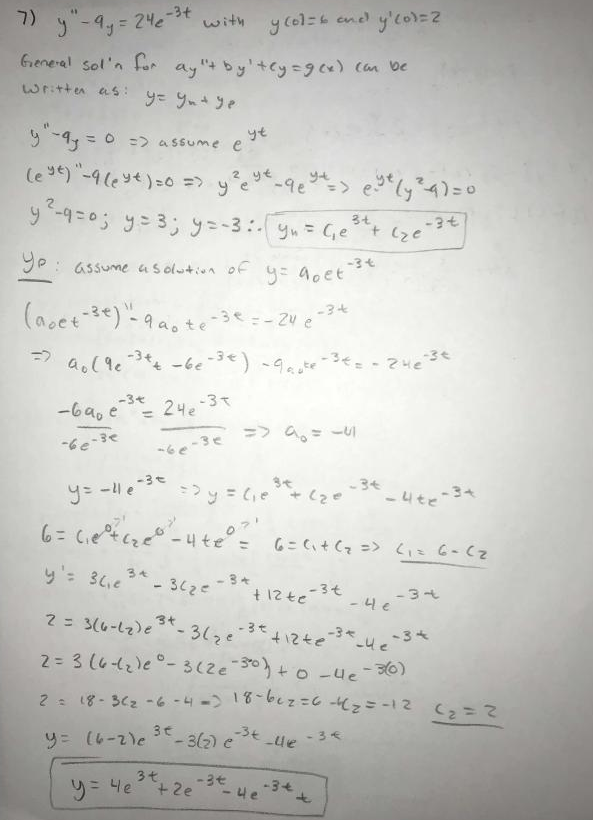 7) y'' - 9y = 24e^-3t with y(0)=6 and y'(0)=2
General sol'n for ay''+by'+cy=g(x) can be
written as: y= yn + yp
y''-9y = 0 => assume e^yt
(e^yt)''-9(e^yt)=0 => y²e^yt-9e^yt => e^yt(y²-9)=0
y²-9=0; y=3; y=-3 ∴ yn = C1e^3t + C2e^-3t
yp: assume a solution of y= a0et^-3t
(a0et^-3t)''-9a0te^-3t = -24e^-3t
=> a0(9e^-3t t -6e^-3t) -9a0te^-3t = -24e^-3t
-6a0e^-3t = 24e^-3t
-6e^-3t -6e^-3t => a0=-4
y= -4e^-3t => y= C1e^3t + C2e^-3t - 4te^-3t
6= C1e^0 + C2e^0 - 4te^0 = 6=C1+C2 => C1= 6-C2
y'= 3C1e^3t - 3C2e^-3t + 12te^-3t - 4e^-3t
2 = 3(6-C2)e^3t - 3C2e^-3t + 12te^-3t - 4e^-3t
2= 3(6-C2)e^0 - 3(2e^-3(0)) + 0 - 4e^-3(0)
2 = 18-3C2-6-4 => 18-6C2=6 -6C2=-12 C2=2
y= (6-2)e^3t - 3(2)e^-3t - 4e^-3t
y= 4e^3t + 2e^-3t - 4e^-3t t